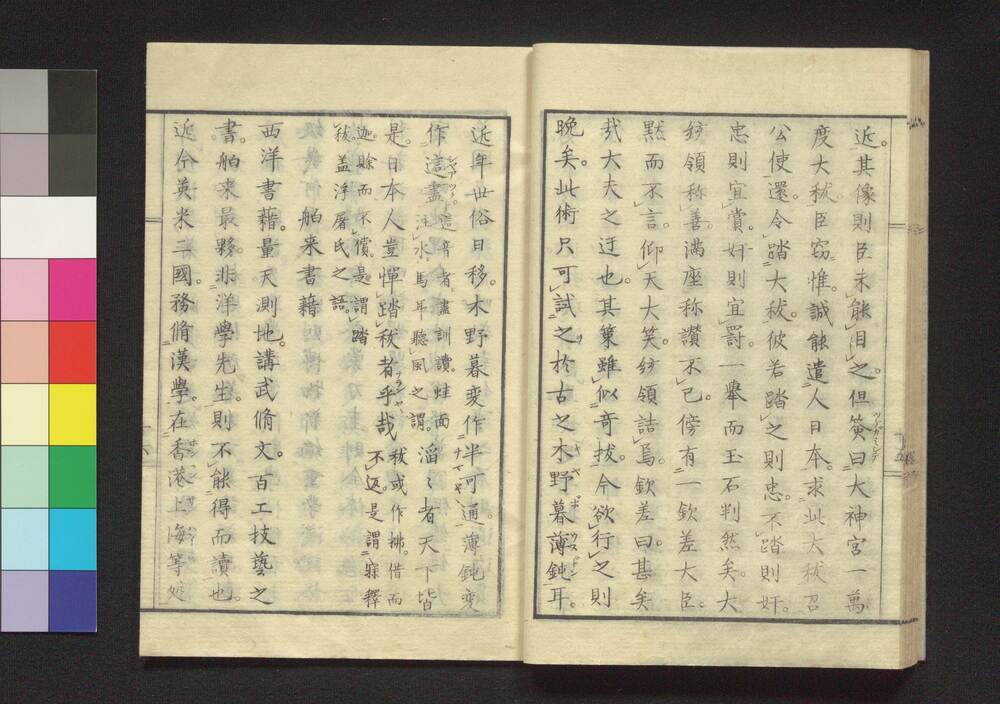 近。其像則臣未能目之。但簧曰大神宮一萬
度大秡。臣窃惟。誠能遣人日本。求此大秡召
公使還。令踏大秡。彼若踏之則忠。不踏則奸。
忠則宜賞。奸則宜罸。一舉而玉石判然矣。大
統領称善。満座称讃不已。傍有一欽差大臣。
黙而不言。仰天大笑。統領詰焉。欽差曰。甚矣
哉大夫之迂也。其策雖似奇抜。今欲行之則
晩矣。此術只可試之於古之木野暮薄鈍耳。
近年世俗日移。木野暮変作半可通。薄鈍変
作這盡。這音者。盡訓讀。蛙面注水。馬耳聽風之謂。滔々者天下皆
是。日本人豈憚踏秡者乎哉 秡或作拂。借而不返。是謂寐釋
迦。賖而不償。是謂踏秡。盖浮屠氏之語。
舶来書藉
西洋書藉。量天測地。講武脩文。百工技藝之
書。舶来最夥。非洋學先生。則不能得而讀也。
近今英米二國。務脩漢學。在香港上海等処